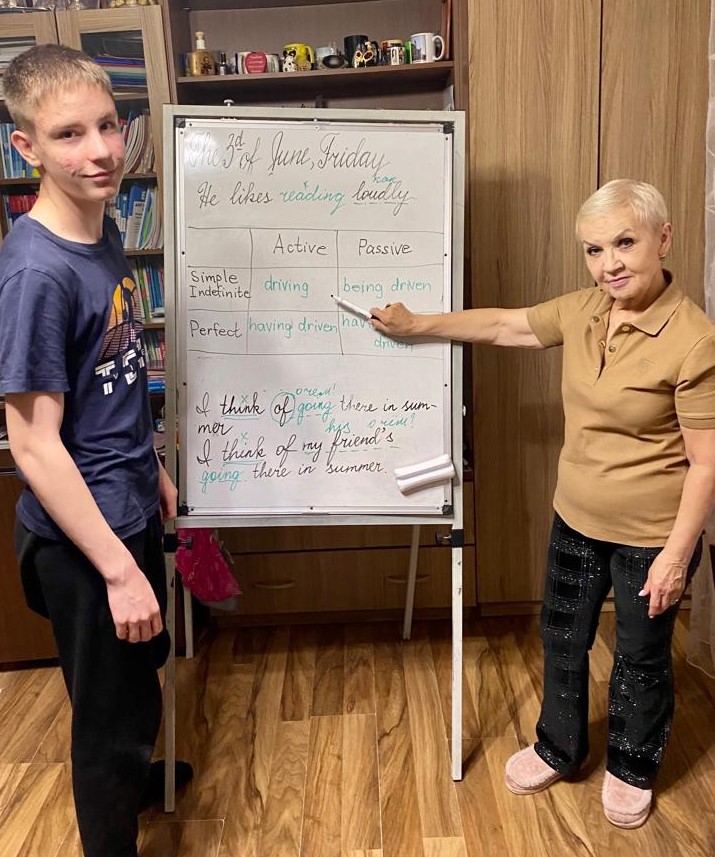 The 3d of June, Friday
как
He likes reading loudly
Active Passive
Simple Indefinite driving being driven
Perfect having driven driven
о чём?
I think of going there in sum-
mer
his о чём?
I think of my friend's
going there in summer.